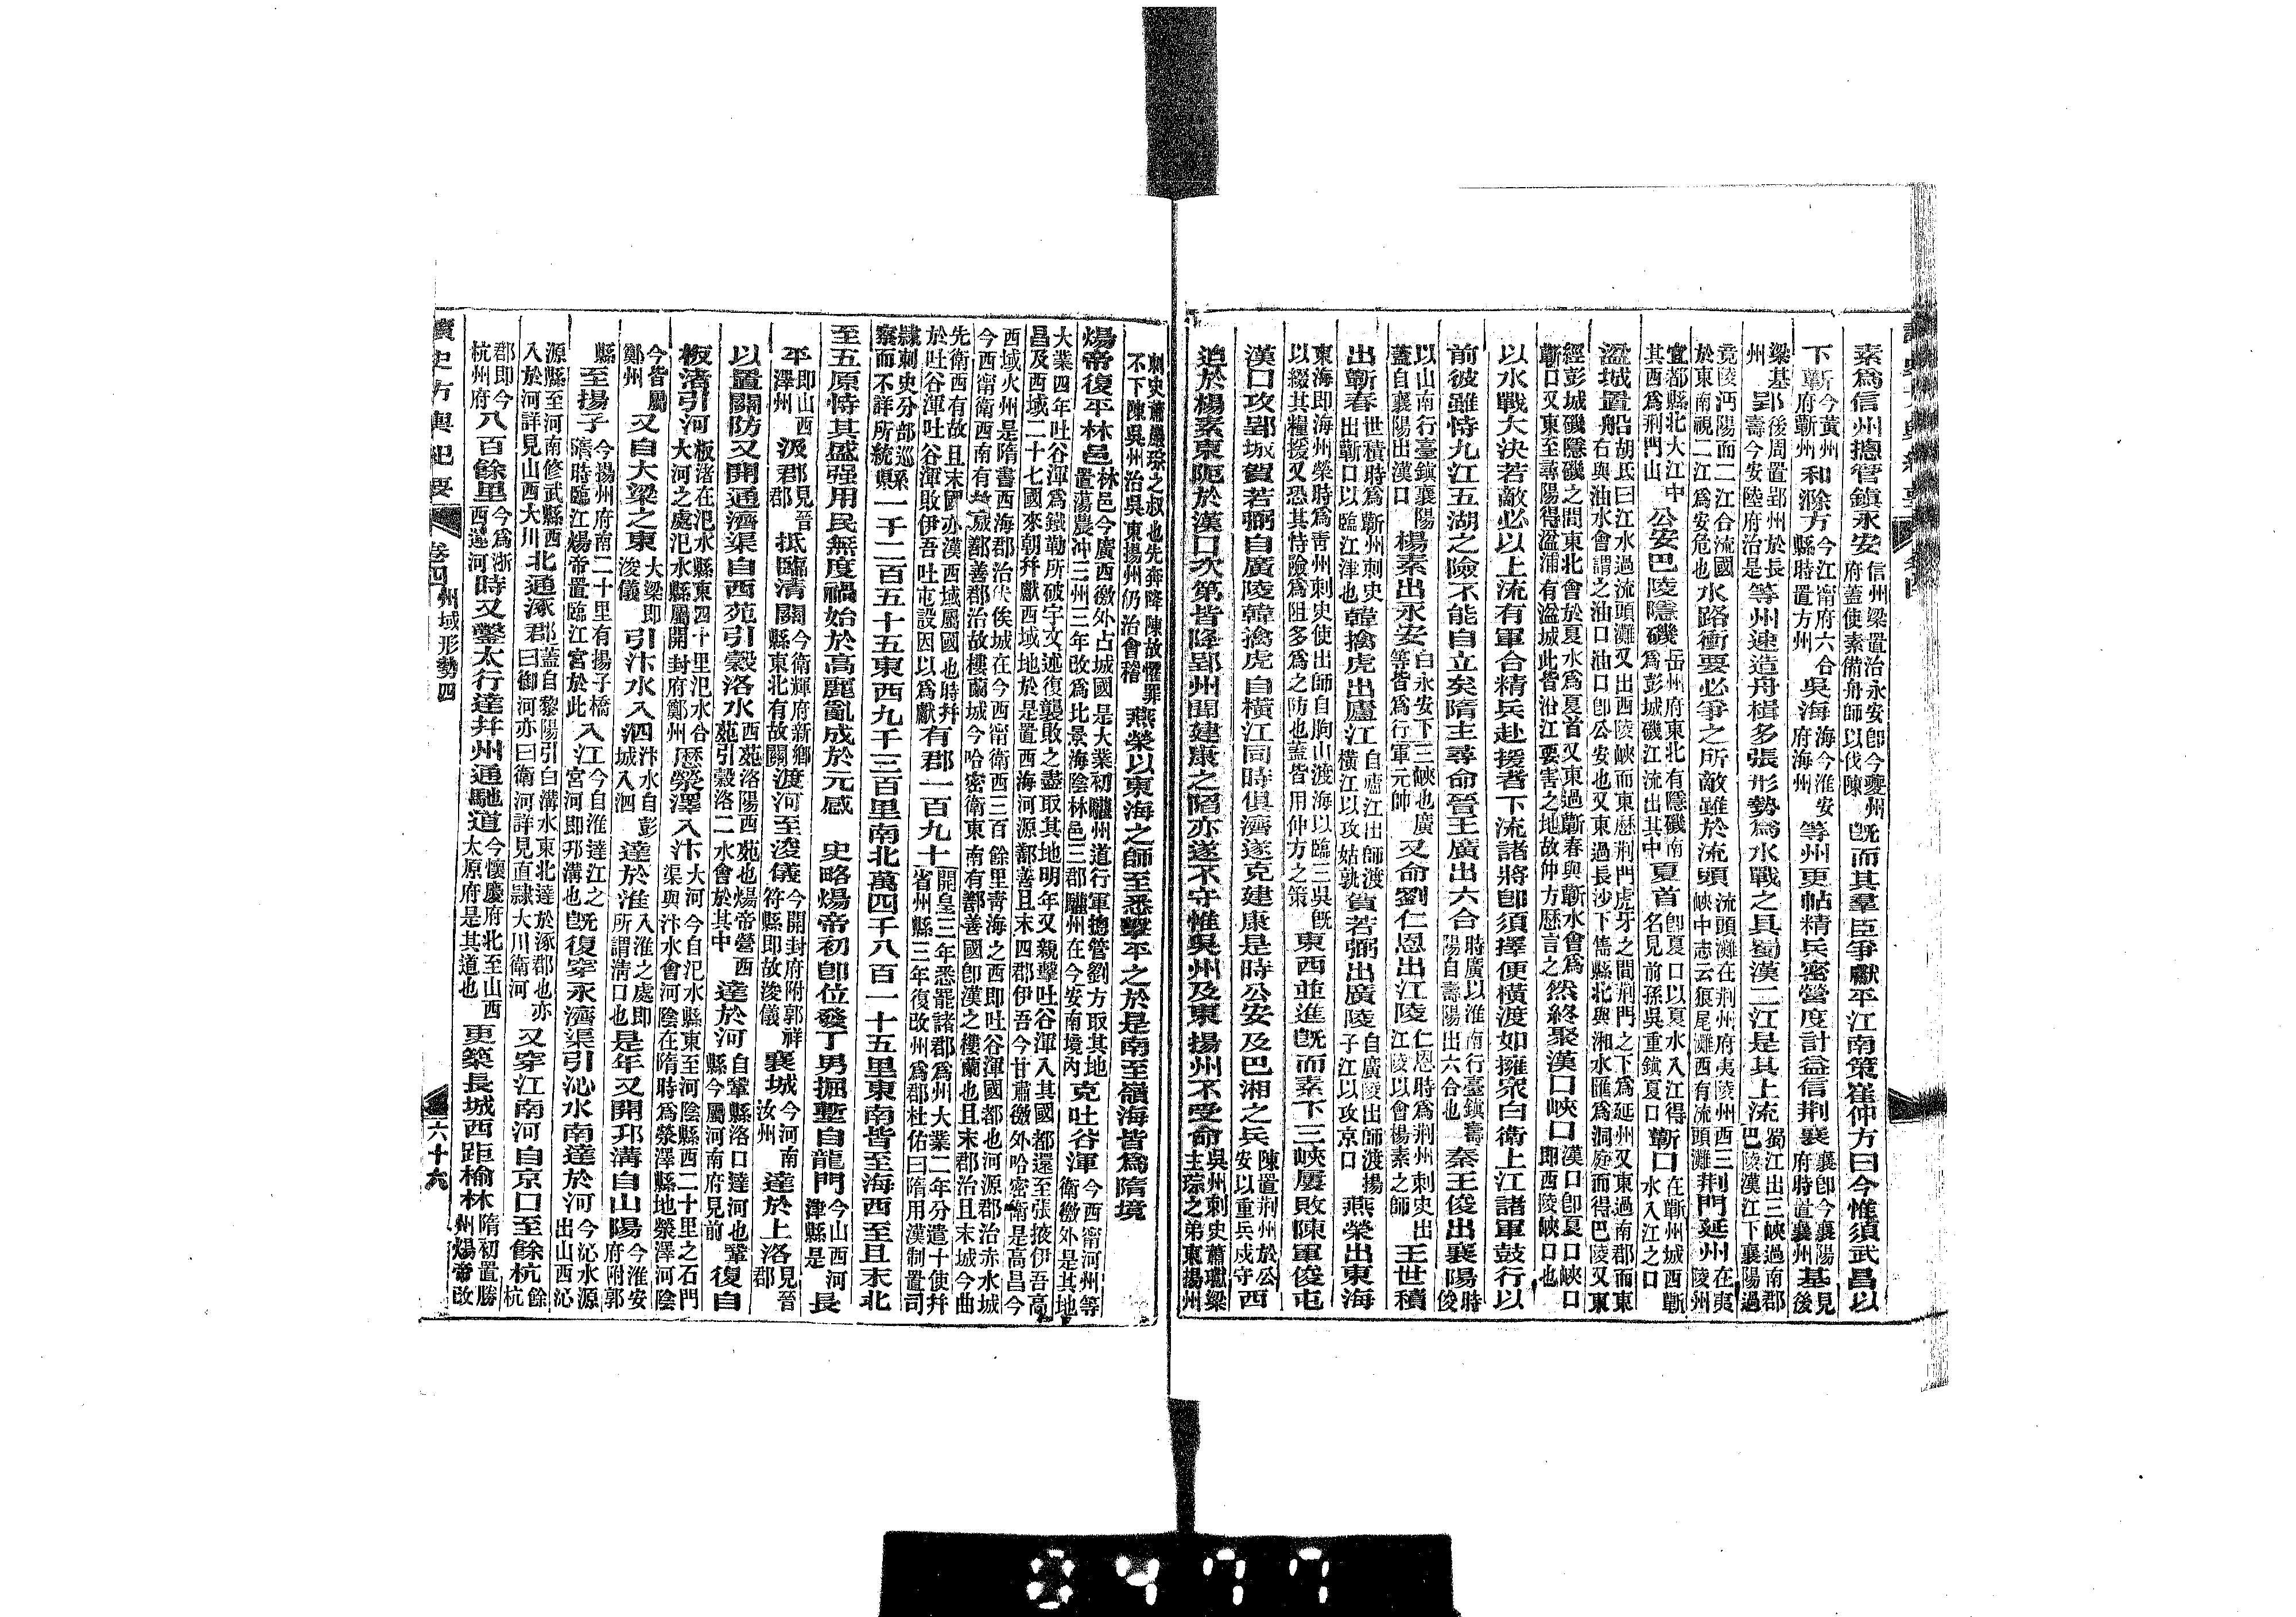 素爲信州總管鎮永安信州梁置治永安卽今夔州府蓋使素備舟師以伐陳旣而其羣臣爭獻平江南策崔仲方曰今惟須武昌以
下蘄今黃州府蘄州和滁方今江甯府六合縣時置方州吳海海今淮安府海州等州更帖精兵密營度計益信荆襄襄卽今襄陽府時置襄州基見後
梁基州郢後周置郢州於長壽今安陸府治是等州速造舟楫多張形勢爲水戰之具蜀漢二江是其上流蜀江出三峽過南郡巴陵漢江下襄陽過
竟陵沔陽而二江合流國於東南視二江爲安危也水路衝要必爭之所敵雖於流頭流頭灘在荆州府夷陵州西三峽中志云狼尾灘西有流頭灘荆門延州在夷陵州
宜都縣北大江中其西爲荆門山公安巴陵隱磯岳州府東北有隱磯南爲彭城磯江流出其中夏首卽夏口以夏水入江得名見前孫吳重鎮夏口蘄口在蘄州城西蘄水入江之口
湓城置船胡氏曰江水過流頭灘又出西陵峽而東歷荆門虎牙之間荆門之下爲延州又東過南郡而東右與油水會謂之油口油口卽公安也又東過長沙下雋縣北與湘水匯爲洞庭而得巴陵又東
經彭城磯隱磯之間東北會於夏水爲夏首又東過蘄春與蘄水會爲蘄口又東至尋陽得湓浦有湓城此皆沿江要害之地故仲方歷言之然終聚漢口峽口漢口卽夏口峽口卽西陵峽口也
以水戰大決若敵必以上流有軍令精兵赴援者下流諸將卽須擇便橫渡如擁衆自衛上江諸軍鼓行以
前彼雖恃九江五湖之險不能自立矣隋主尋命晉王廣出六合時廣以淮南行臺鎮壽陽自壽陽出六合也秦王俊出襄陽時俊
以山南行臺鎮襄陽蓋自襄陽出漢口楊素出永安自永安下三峽也廣等皆爲行軍元帥又命劉仁恩出江陵仁恩時爲荆州刺史出江陵以會楊素之師王世積
出蘄春世積時爲蘄州刺史出蘄口以臨江津也韓擒虎出廬江自廬江出師渡橫江以攻姑孰賀若弼出廣陵自廣陵出師渡揚子江以攻京口燕榮出東海
東海卽海州榮時爲靑州刺史使出師自朐山渡海以臨三吳旣以綴其糧援又恐其恃險爲阻多爲之防也蓋皆用仲方之策東西並進旣而素下三峽屢敗陳軍俊屯
漢口攻郢城賀若弼自廣陵韓擒虎自橫江同時俱濟遂克建康是時公安及巴湘之兵陳置荆州於公安以重兵戍守西
迫於楊素東阨於漢口次第皆降郢州聞建康之陷亦遂不守惟吳州及東揚州不受命吳州刺史蕭瓛梁主琮之弟東揚州
刺史蕭巖琮之叔也先奔降陳故懼罪不下陳吳州治吳東揚州仍治會稽燕榮以東海之師至悉擊平之於是南至嶺海皆爲隋境
煬帝復平林邑林邑今廣西徼外占城國是大業初驩州道行軍總管劉方取其地置蕩農沖三州三年改爲比景海陰林邑三郡驩州在今安南境內克吐谷渾今西甯河州等衛徼外是其地
大業四年吐谷渾爲鐵勒所破宇文述復襲敗之盡取其地明年又親擊吐谷渾入其國都還至張掖伊吾高昌及西域二十七國來朝幷獻西域地於是置西海河源鄯善且末四郡伊吾今甘肅徼外哈密衛是高昌今
西域火州是隋書西海郡治伏俟城在今西甯衛西三百餘里靑海之西即吐谷渾國都也河源郡治赤水城今西甯衛西南有赤水城鄯善郡治故樓蘭城今哈密衛東南有鄯善國卽漢之樓蘭也且末郡治且末城今曲
先衛西有故且末國亦漢西域屬國也時幷於吐谷渾吐谷渾敗伊吾吐屯設因以爲獻有郡一百九十開皇三年悉罷諸郡爲州大業二年分遣十使幷省州縣三年復改州爲郡杜佑曰隋用漢制置司
隸刺史分部巡察而不詳所統縣一千二百五十五東西九千三百里南北萬四千八百一十五里東南皆至海西至且末北
至五原恃其盛强用民無度禍始於高麗亂成於元感　史略煬帝初卽位發丁男掘塹自龍門今山西河津縣是長
平卽山西澤州汲郡見晉郡抵臨清關今衛輝府新鄉縣東北有故關渡河至浚儀今開封府附郭祥符縣即故浚儀襄城今河南汝州達於上洛見晉郡
以置關防又開通濟渠自西苑引穀洛水西苑洛陽西苑也煬帝營西苑引穀洛二水會於其中達於河自鞏縣洛口達河也鞏縣今屬河南府見前復自
板渚引河板渚在汜水縣東四十里汜水合大河之處汜水縣屬開封府鄭州歷滎澤入汴大河今自汜水縣東至河陰縣西二十里之石門渠與汴水會河陰在隋時爲滎澤縣地滎澤河陰
今皆屬鄭州又自大梁之東大梁即浚儀引汴水入泗汴水自彭城入泗達於淮入淮之處即所謂淸口也是年又開邗溝自山陽今淮安府附郭
縣至揚子今揚州府南二十里有揚子橋隋時臨江煬帝置臨江宮於此入江今自淮達江之宮河即邗溝也旣復穿永濟渠引沁水南達於河今沁水源出山西沁
源縣至河南修武縣西入於河詳見山西大川北通涿郡蓋自黎陽引白溝水東北達於涿郡也亦曰御河亦曰衛河詳見直隸大川衛河又穿江南河自京口至餘杭餘杭
郡即今杭州府八百餘里今爲浙西運河時又鑿太行達幷州通馳道今懷慶府北至山西太原府是其道也更築長城西距榆林隋初置勝州煬帝改
讀史方輿紀要　卷四　州域形勢四　六十六
3477